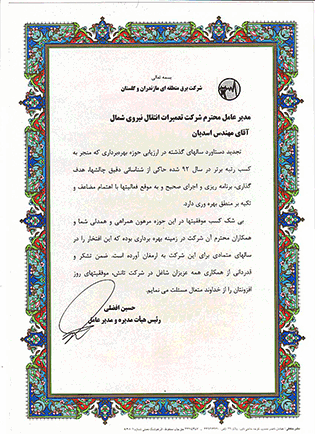 بسمه تعالی
شرکت برق منطقه ای مازندران و گلستان
مدیر عامل محترم شرکت تعمیرات انتقال نیروی شمال
آقای مهندس اسدیان
تجدید دستاورد سالهای گذشته در ارزیابی حوزه بهره‌برداری که منجر به
کسب رتبه برتر در سال ۹۲ شده حاکی از شناسائی دقیق چالشها، هدف
گذاری، برنامه ریزی و اجرای صحیح و به موقع فعالیتها با اهتمام مضاعف و
تکیه بر منطق بهره وری دارد.
بی شک کسب موفقیتها در این حوزه مرهون همراهی و همدلی شما و
همکاران محترم آن شرکت در زمینه بهره برداری بوده که این افتخار را در
سالهای متمادی برای این شرکت به ارمغان آورده است. ضمن تشکر و
قدردانی از همکاری همه عزیزان شاغل در شرکت تلاش، موفقیتهای روز
افزونتان را از خداوند متعال مسئلت می نمایم.
حسین افضلی
رئیس هیأت مدیره و مدیر عامل